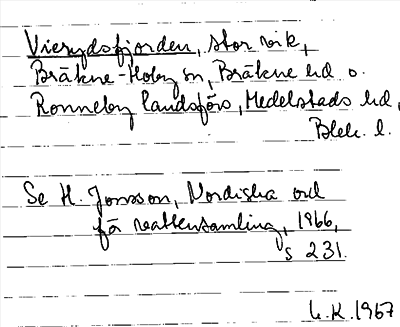 Vierydsfjorden, stor vik,
Bräkne-Hoby sn, Bräkne hd o.
Ronneby landsförs, Medelstads hd,
Blek. l.
Se H. Jonsson, Nordiska ord
för vattensamling, 1966,
s 231.
L.K. 1967